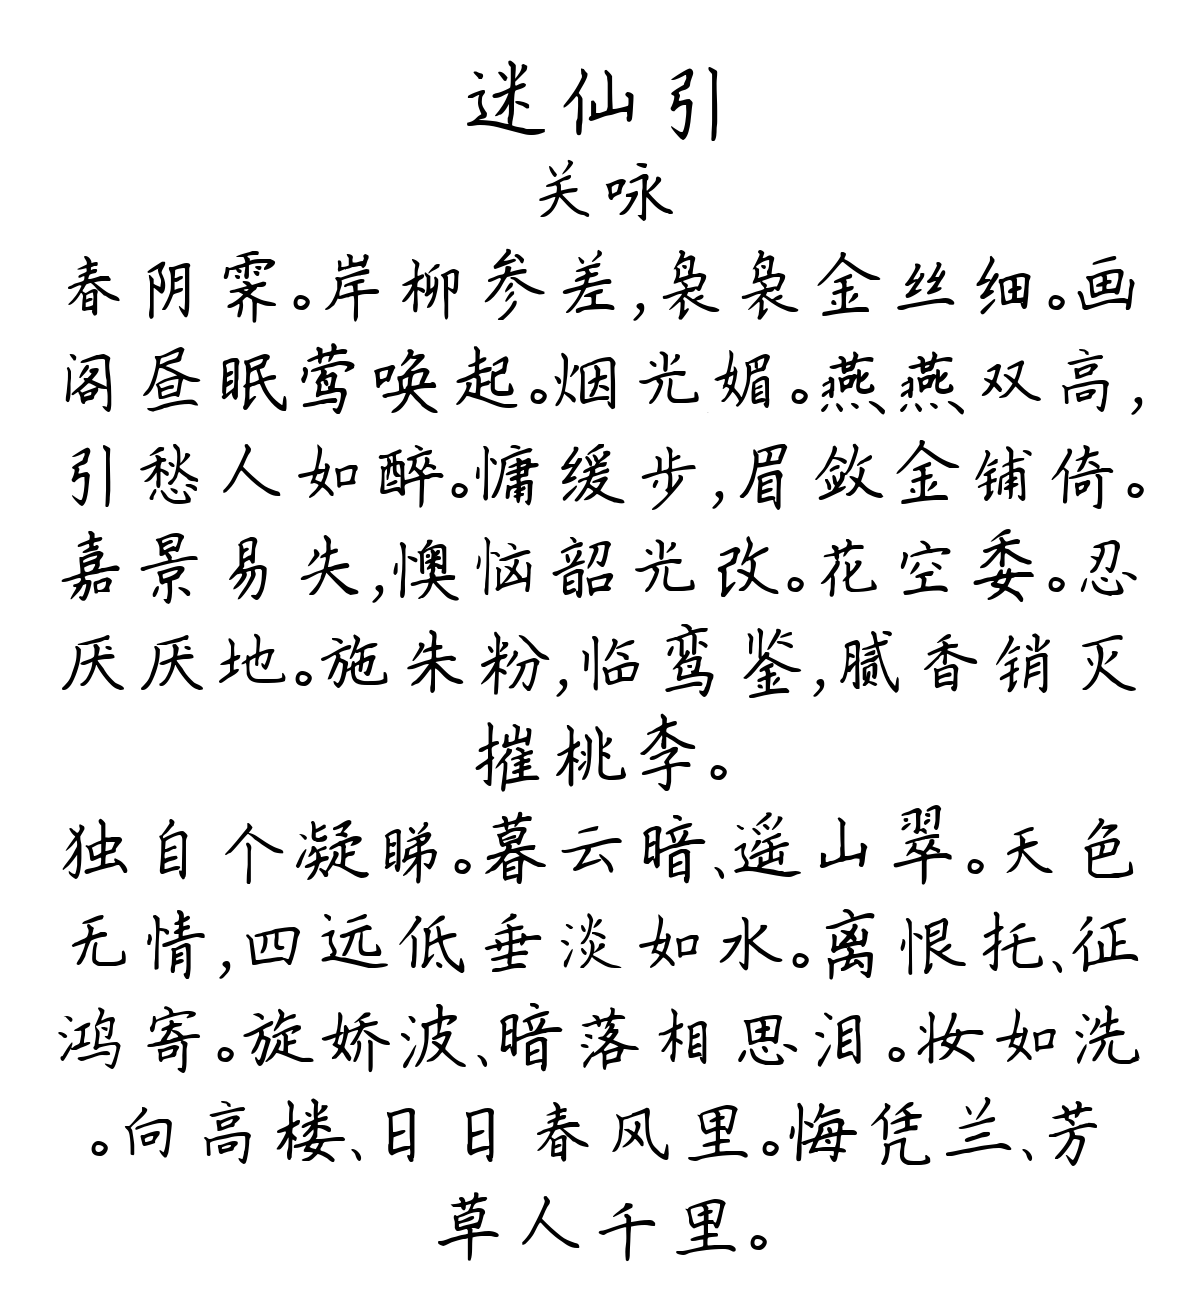 迷仙引
关咏
春阴霁。岸柳参差,袅袅金丝细。画
阁昼眠莺唤起。烟光媚。燕燕双高,
引愁人如醉。慵缓步,眉敛金铺倚。
嘉景易失,懊恼韶光改。花空委。忍
厌厌地。施朱粉,临鸾鉴,腻香销灭
摧桃李。
独自个凝睇。暮云暗、遥山翠。天色
无情,四远低垂淡如水。离恨托、征
鸿寄。旋娇波、暗落相思泪。妆如洗
。向高楼、日日春风里。悔凭兰、芳
草人千里。